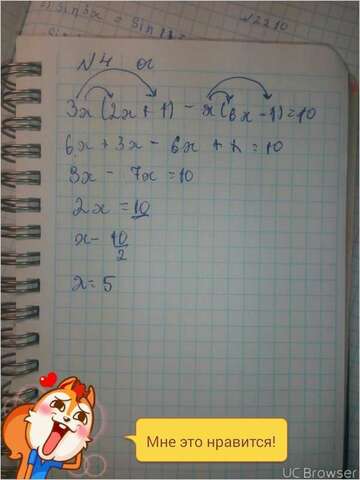 sin3x = sin
№2210
№4 а
3x(2x+1) - x(6x-1)=10
6x+3x-6x+x=10
9x-7x=10
2x=10
x-10/2
x=5
Мне это нравится!
UC Browser